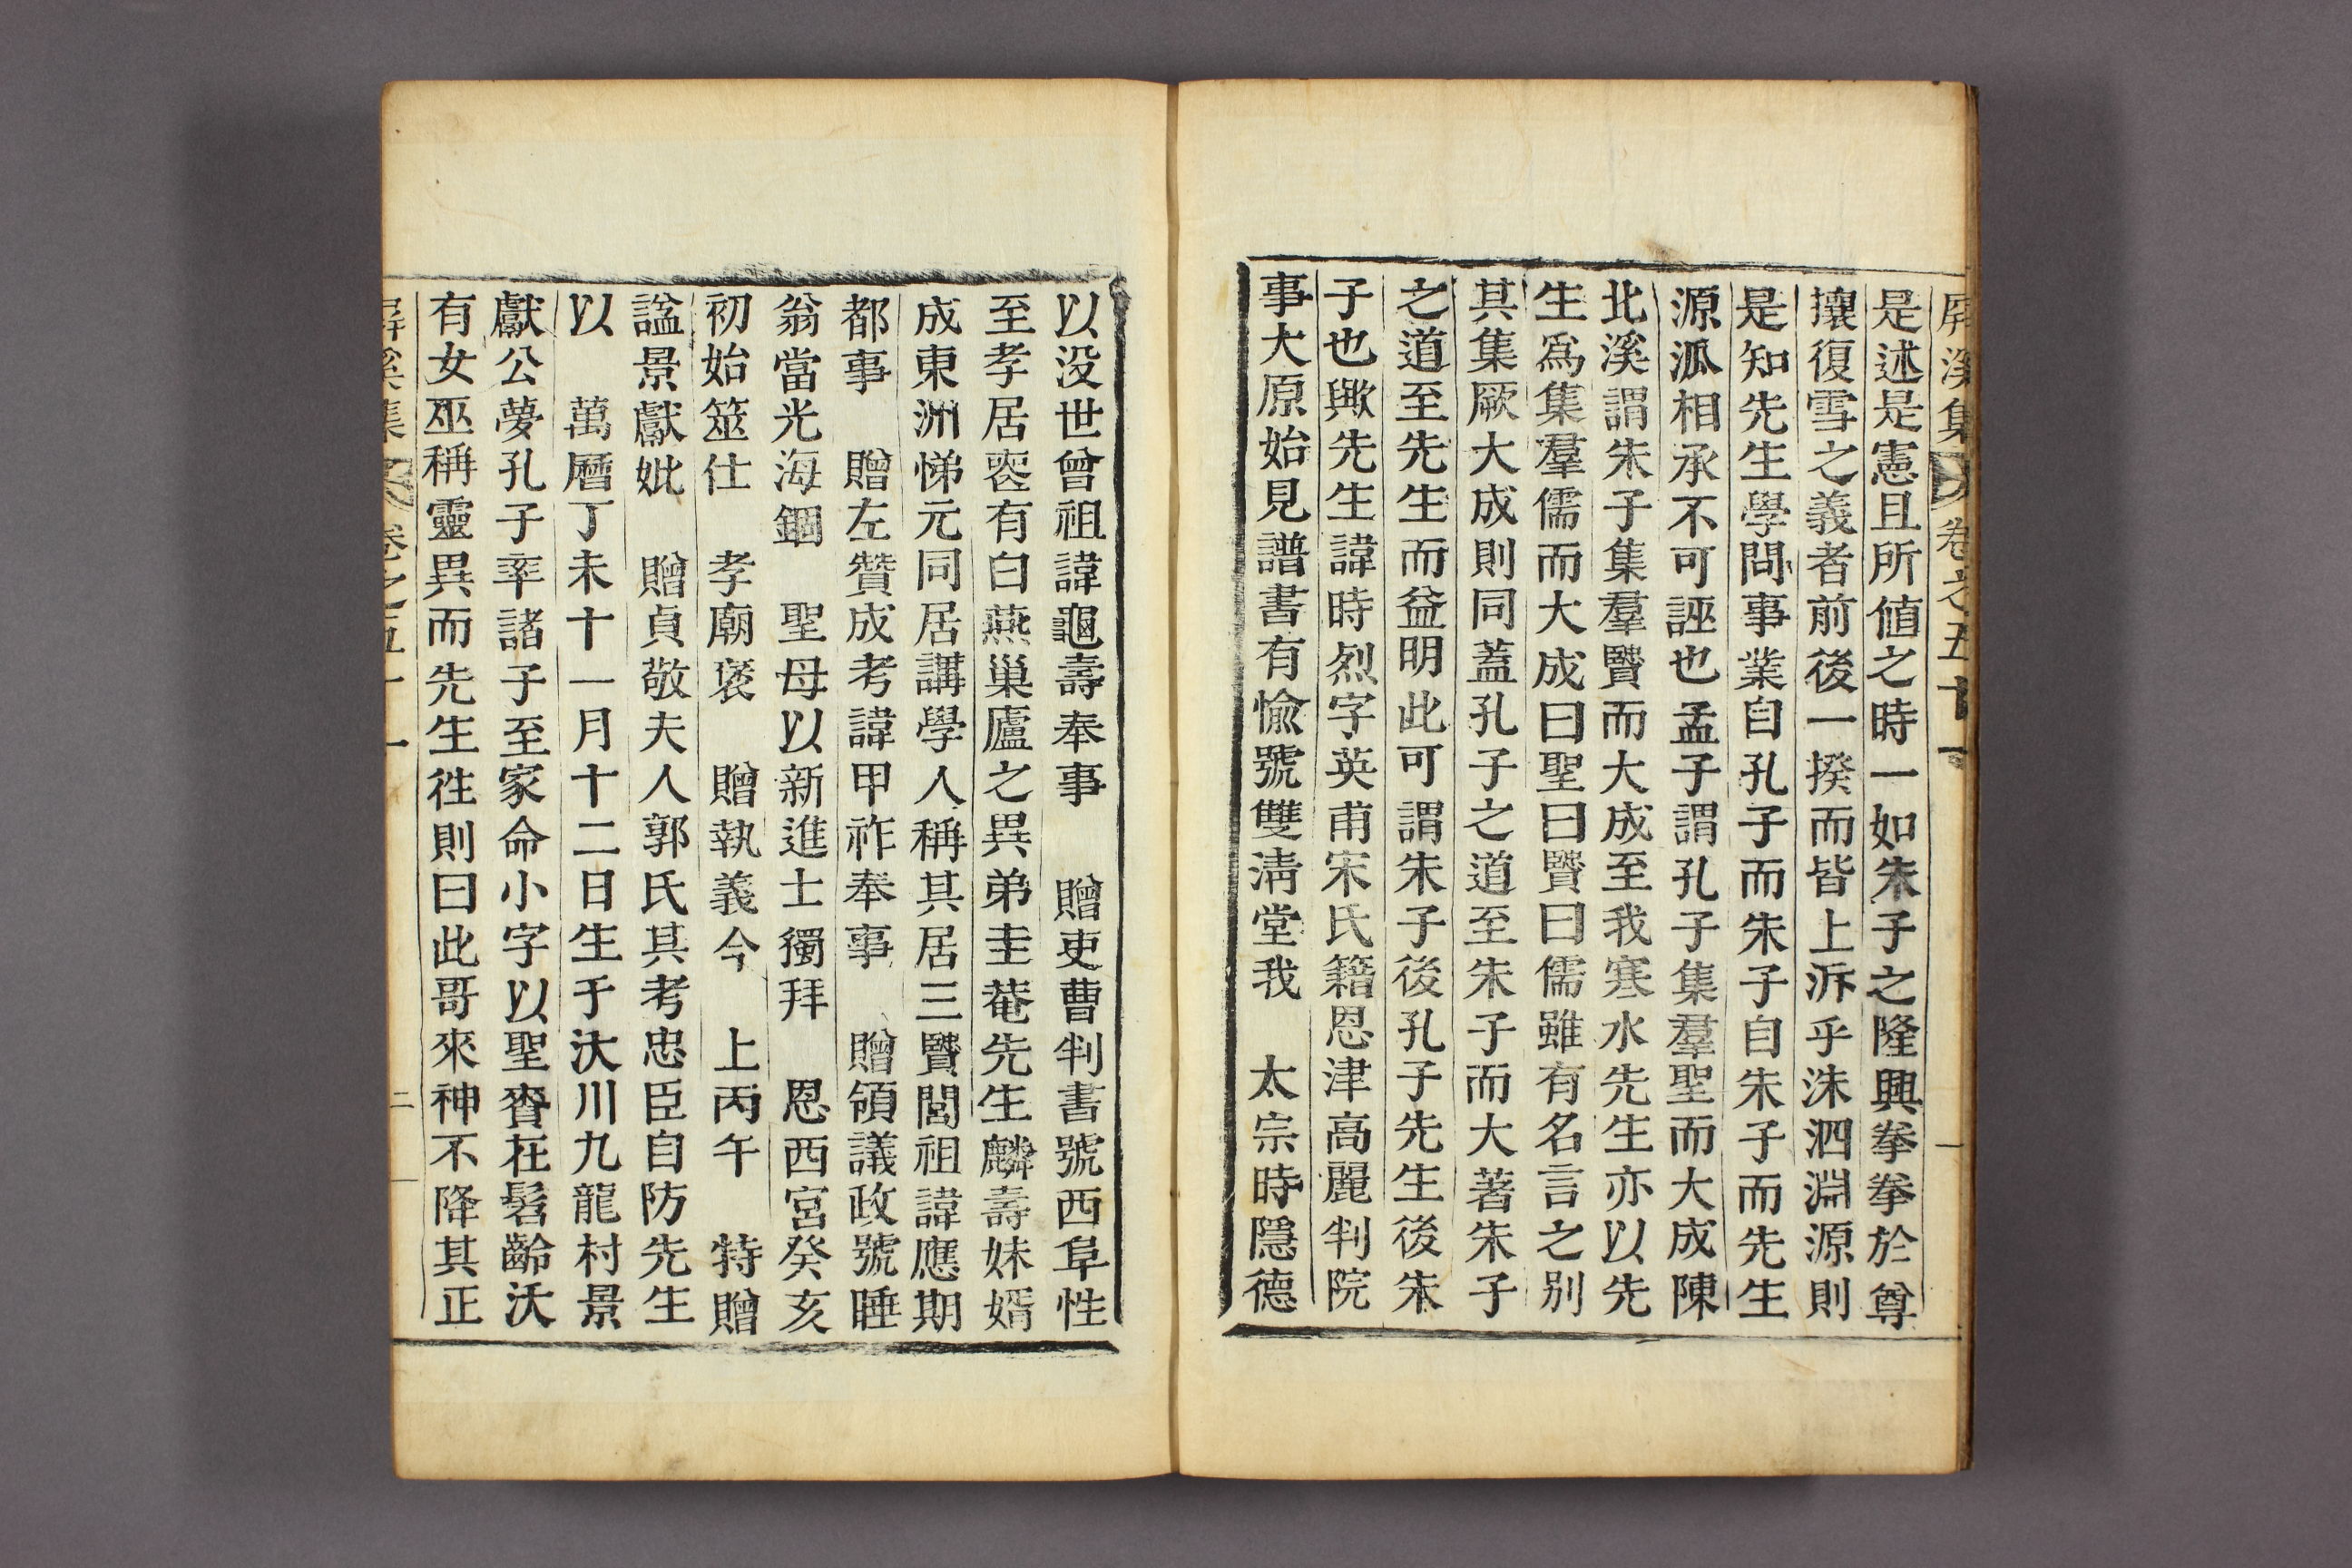 屛溪集 卷之五十一
是述是憲且所値之時一如朱子之隆興拳拳於尊
攘復雪之義者前後一揆而皆上泝乎洙泗淵源則
是知先生學問事業自孔子而朱子自朱子而先生
源泒相承不可誣也孟子謂孔子集羣聖而大成陳
北溪謂朱子集羣賢而大成至我寒水先生亦以先
生爲集羣儒而大成曰聖曰賢曰儒雖有名言之别
其集厥大成則同蓋孔子之道至朱子而大著朱子
之道至先生而益明此可謂朱子後孔子先生後朱
子也歟先生諱時烈字英甫宋氏籍恩津高麗判院
事大原始見譜書有愉號雙淸堂我 太宗時隱德
以没世曾祖諱龜壽奉事 贈吏曹判書號西阜性
至孝居喪有白燕巢廬之異弟圭菴先生麟壽妹婿
成東洲悌元同居講學人稱其居三賢閭祖諱應期
都事 贈左贊成考諱甲祚奉事 贈領議政號睡
翁當光海錮 聖母以新進士獨拜 恩西宮癸亥
初始筮仕 孝廟褒 贈執義今 上丙午 特贈
諡景獻妣 贈貞敬夫人郭氏其考忠臣自防先生
以 萬曆丁未十一月十二日生于沃川九龍村景
獻公夢孔子率諸子至家命小字以聖賚在髫齡沃
有女巫稱靈異而先生往則曰此哥來神不降其正
屛溪集 卷之五十一 二